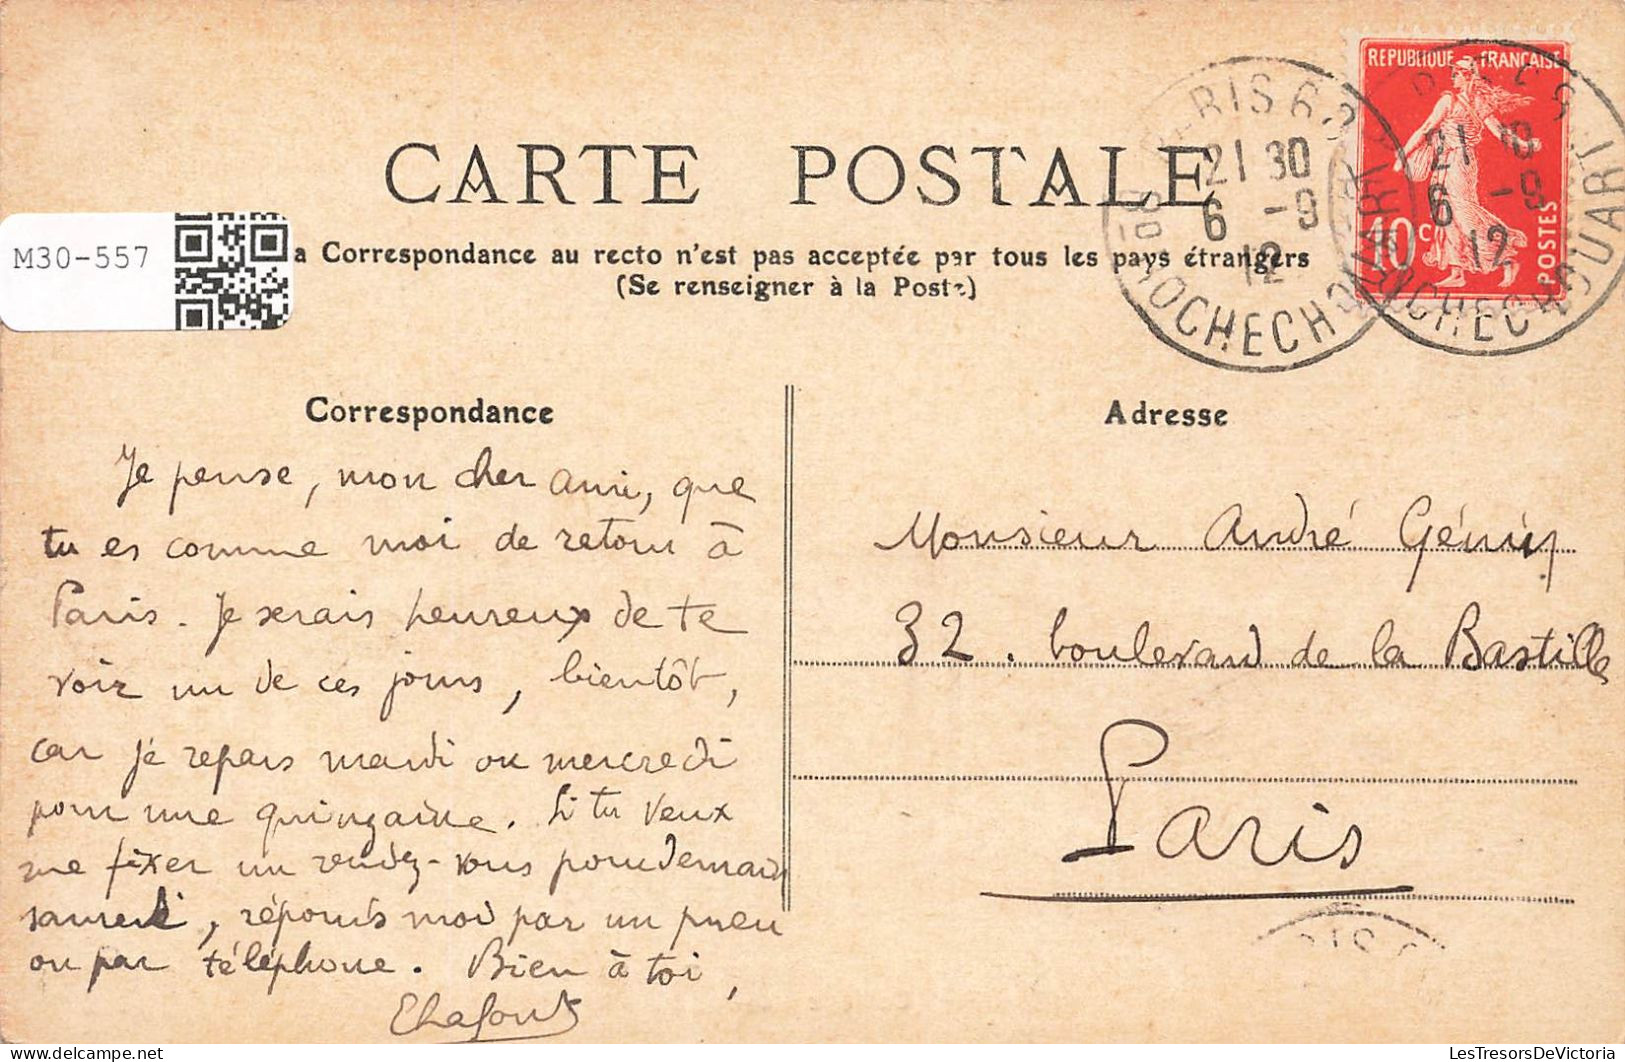 REPUBLIQUE FRANÇAISE
10c POSTES
21 30
6 -9
12
21
6 -9
12
CARTE POSTALE
M30-557
a Correspondance au recto n'est pas acceptée par tous les pays étrangers
(Se renseigner à la Poste)
Correspondance
Je pense, mon cher ami, que
tu es comme moi de retour à
Paris. Je serais heureux de te
voir un de ces jours, bientôt,
car je repars mardi ou mercredi
pour une quinzaine. Si tu veux
me fixer un rendez-vous pour demain
samedi, réponds moi par un pneu
ou par téléphone. Bien à toi,
Adresse
Monsieur André Génin
32. boulevard de la Bastille
Paris
LesTresorsDeVictoria
delcampe.net